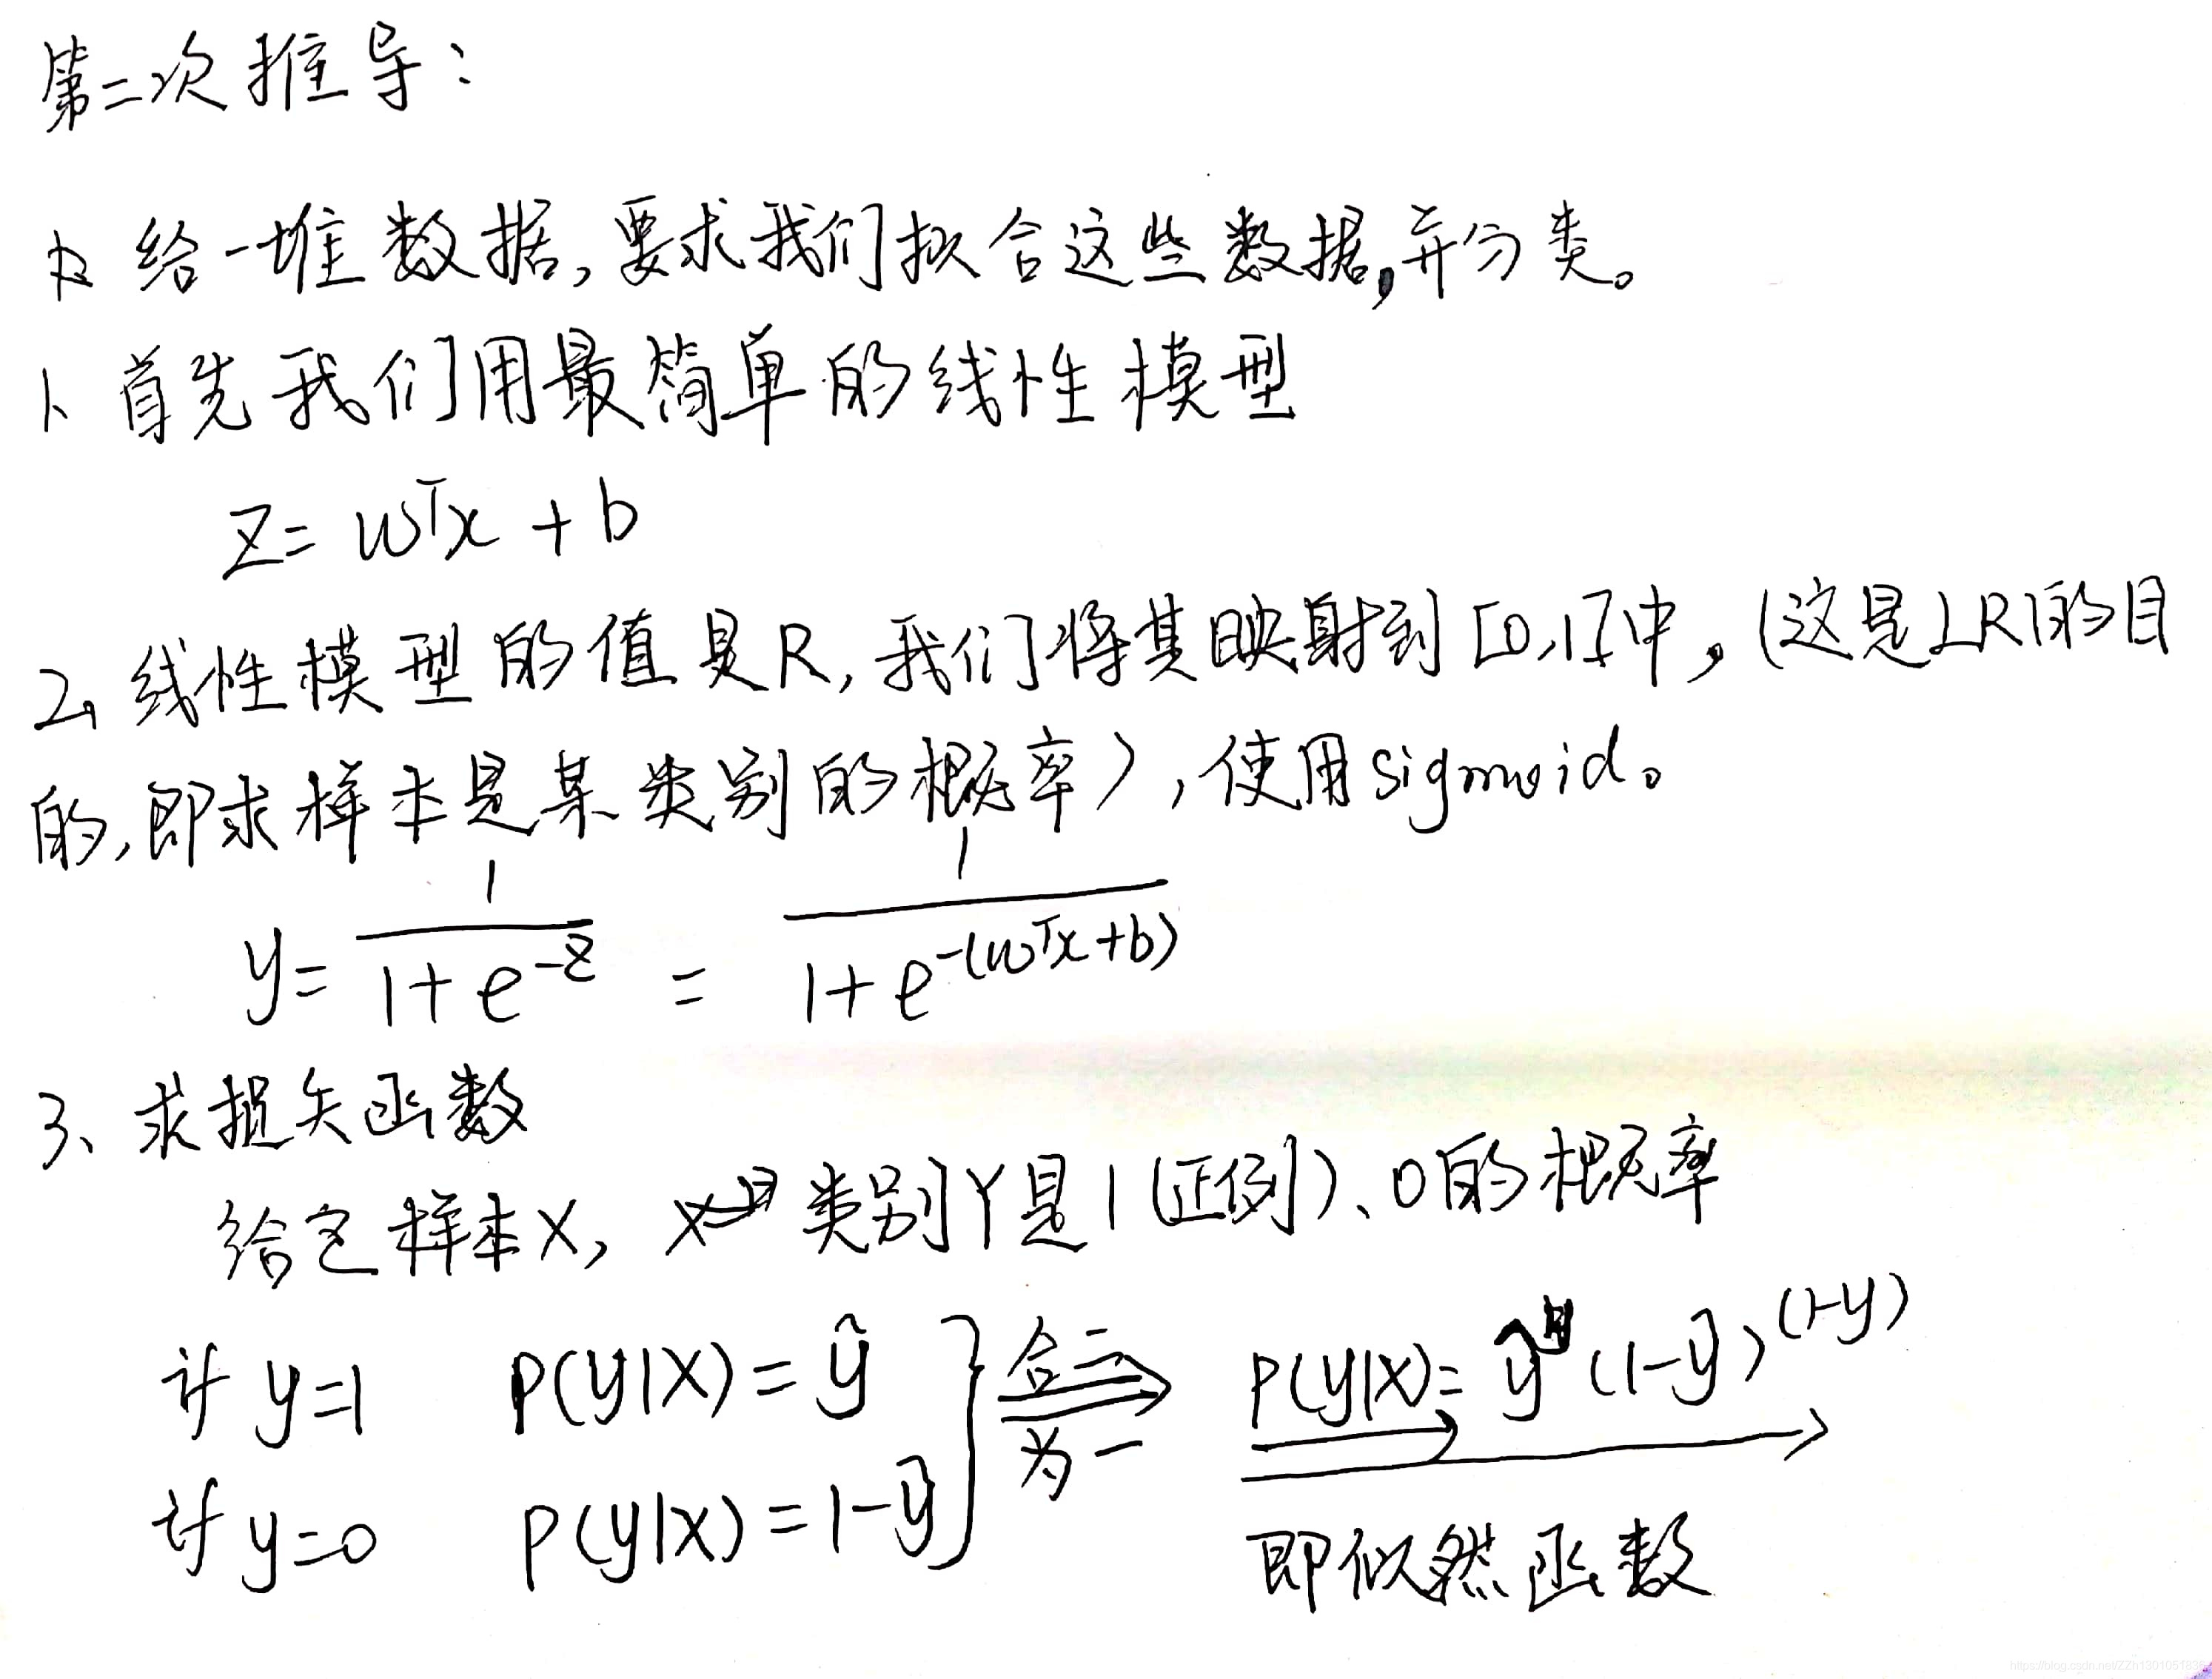 第二次推导：
给一堆数据,要求我们拟合这些数据,并分类。
1、首先我们用最简单的线性模型
z = wᵀx + b
2、线性模型的值是R,我们将其映射到[0,1]中,(这是LR的目
的,即求样本是某类别的概率),使用sigmoid。
y = 1/(1+e^{-z}) = 1/(1+e^{-(wᵀx+b)})
3、求损失函数
给定样本X, 类别Y是1(正例)、0的概率
y=1 P(y|x) = ŷ } 合二为一 ⟹ P(y|x) = ŷ^y (1-ŷ)^(1-y)
y=0 P(y|x) = 1-ŷ
即似然函数
https://blog.csdn.net/ZZh1301051836